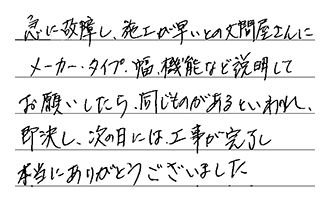 急に故障し、施工が早いとの文問屋さんに
メーカー・タイプ・幅、機能など説明して
お願いしたら、同じものがあるといわれ、
即決し、次の日には、工事が完了し
本当にありがとうございました